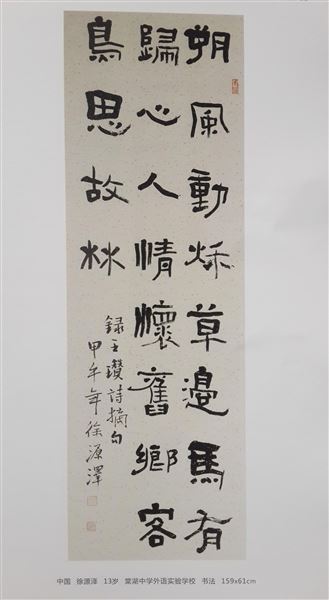 朔風動秌草邉馬有
歸心人情懷舊鄉客
鳥思故林
録王瓚詩摘句
甲午年徐源澤
中国 徐源泽 13岁 棠湖中学外语实验学校 书法 159x61cm